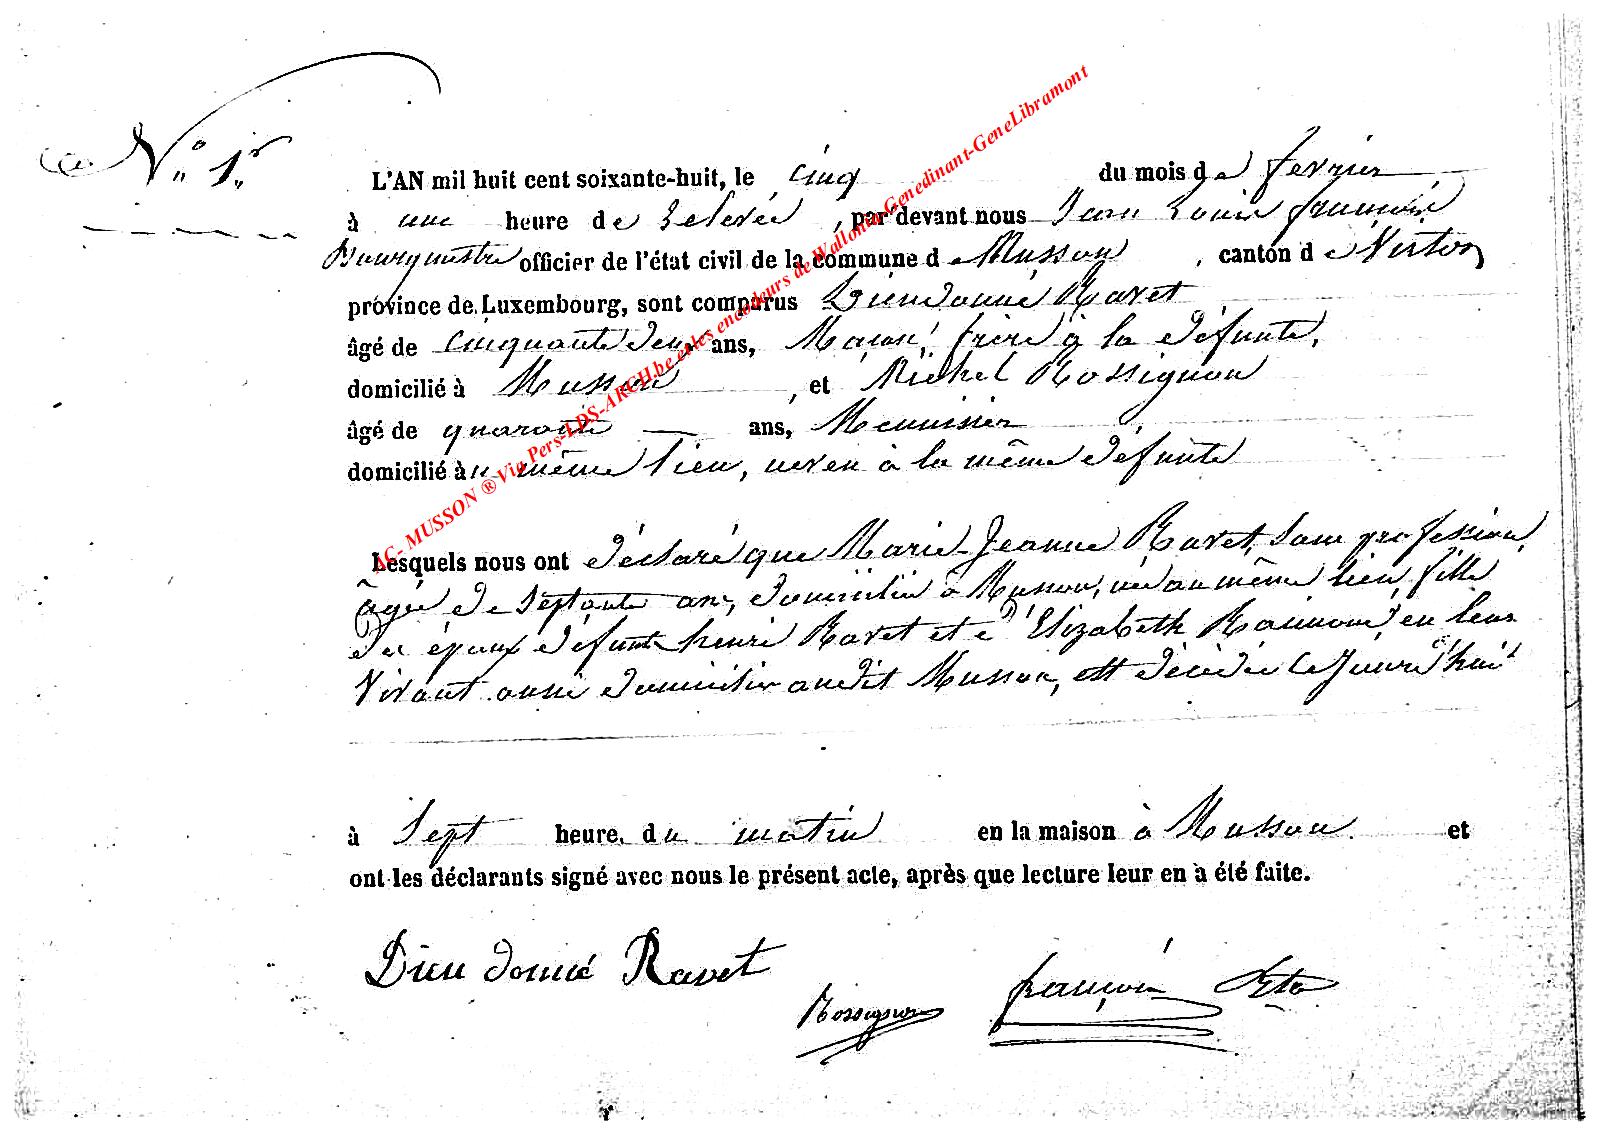 N° 1er
L'AN mil huit cent soixante-huit, le cinq du mois de fevrier
à une heure de relevée, par devant nous Jean Louis françois
Bourgmestre officier de l'état civil de la commune de Musson, canton de Virton
province de Luxembourg, sont comparus Dieudonné Ravet
âgé de cinquante deux ans, Maçon, frère à la défunte,
domicilié à Musson, et Michel Rossignon
âgé de quarante ans, Menuisier
domicilié au même lieu, neveu à la même défunte
Lesquels nous ont déclaré que Marie-Jeanne Ravet, sans profession,
âgée de septante ans, domiciliée à Musson, née au même lieu, fille
des époux défunts henri Ravet et d'Elizabeth en leur
vivant aussi domiciliés audit Musson, est décédée cejourd'huit
à sept heure, du matin en la maison à Musson et
ont les déclarants signé avec nous le présent acte, après que lecture leur en à été faite.
Dieu donné Ravet
Rossignon françois
AC- MUSSON ® Via Pers-LDS-ARCH.be et les encodeurs de Wallonia-Genedinant-GeneLibramont